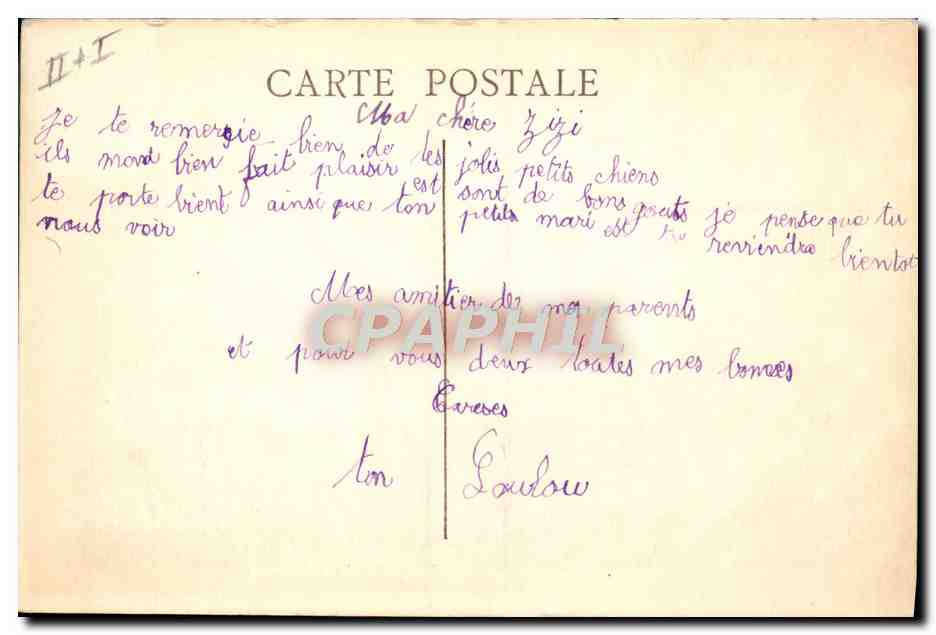 II + I
CARTE POSTALE
Ma chére Zizi
Je te remercie bien de tes jolis petits chiens
ils mond bien fait plaisir est sont de bons gouts je pense que tu
te porte bient ainsi que ton petits mari est tu reviendra bientot
nous voir
Mes amitier de mes parents
CPAPHIL
et pour vous deux toutes mes bonnes
Careses
ton Loulou